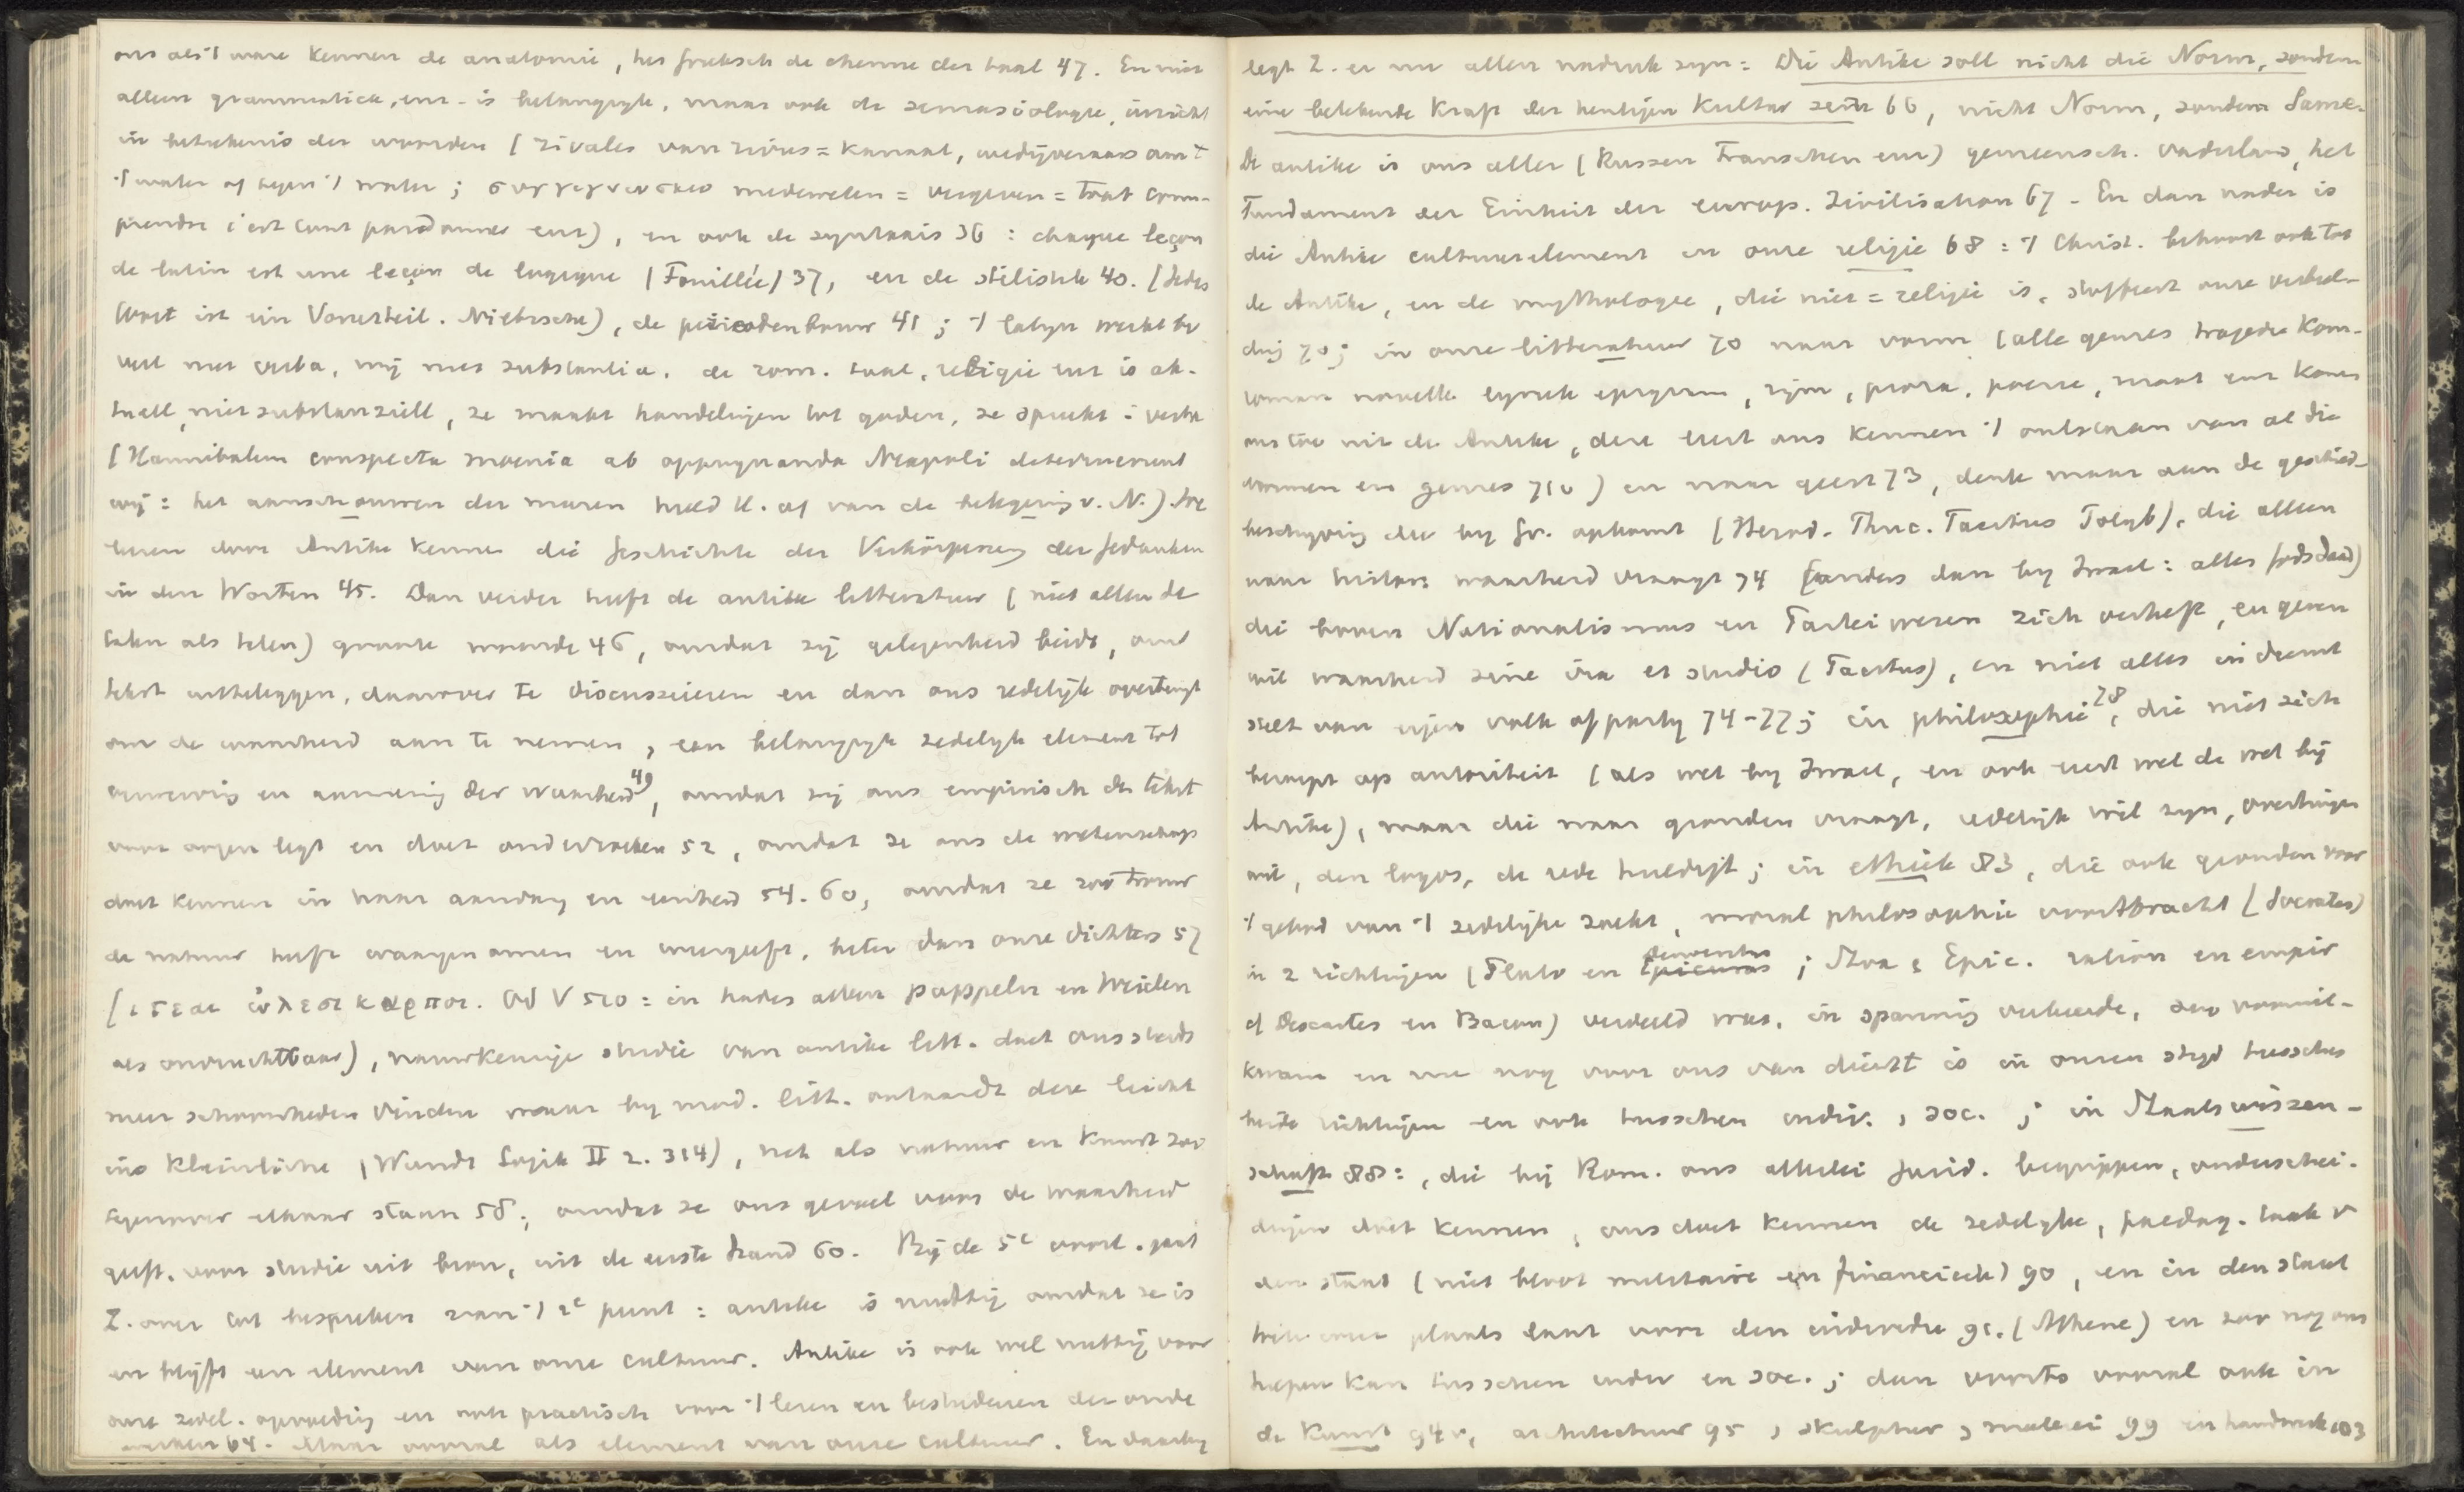 ons als 't ware kennen de anatomie, het Grieksch de chemie der taal 47. En niet
alleen grammatica, enz. is belangryk, maar ook de semasiologie, inzicht
in beteekenis der woorden (rivales van rivus = kanaal, wedijveraars om 't
't water of tegen 't water; συγγιγνωσκω medeweten = vergeven = tout com-
prendre c'est tout pardonner enz), en ook de syntaxis 36 : chaque leçon
de latin est une leçon de logique (Fouillée) 37, en de stilistik 40. (Jedes
Wort ist ein Vorurteil. Nietzsche), de periodenbouw 41 ; 't latyn werkt by
veel met verba, wij met substantia. de rom. taal, religie enz is ak-
tuell, niet substanziell, ze maakt handelingen tot goden, ze spreekt i. verba
(Hannibalem conspecta moenia ab oppugnanda Neapoli deterruerunt
wij : het aanschouwen der muren hield H. af van de belegering v. N.). We
leeren door Antike kennen die Geschichte der Verkörperung der Gedanken
in den Worten 45. Dan verder heeft de antike litteratuur (niet alleen de
talen als talen) groote waarde 46, omdat zij gelegenheid biedt, om
tekst uitteleggen, daarover te discussieeren en dan ons redelijk overtuigt
om de waarheid aan te nemen, een belangryk zedelyk element tot
en aanneming der waarheid 49, omdat zij ons empirisch de tekst
voor oogen legt en doet onderzoeken 52, omdat ze ons de wetenschap
doet kennen in haar aanvang en eenheid 54. 60, omdat ze zoo trouw
de natuur heeft waargenomen en weergeeft, beter dan onze dichters 57
(ιτεαι ὠλεσικαρποι. Od V 510 : in hades alleen pappeln en Weiden
als onvruchtbaar), nauwkeurige studie van antike litt. doet ons steeds
meer schoonheden vinden maar by mod. litt. ontaardt deze leicht
ins Kleinliche (Wundt Logik II 2. 314), net als natuur en Kunst zoo
tegenover elkaar staan 58 ; omdat ze ons gevoel voor de waarheid
geeft. voor studie uit bron, uit de eerste hand 60. Bij de 5e voorl. gaat
Z. over tot bespreken van 't 2e punt : antike is nuttig omdat ze is
en blijft een element van onze cultuur. Antike is ook wel nuttig voor
onze zedel. opvoeding en ook practisch voor 't lezen en bestudeeren der oude
werken 64. Maar vooral als element van onze cultuur. En daarby
legt Z. er nu allen nadruk zyn = Die Antike soll nicht die Norm, sondern
eine belebende Kraft der heutigen Kultur sein 66, nicht Norm, sondern Same.
De antike is ons aller (Russen Franschen enz) gemeensch. vaderland, het
Fundament der Einheit der europ. Zivilisation 67 - En dan nader is
die Antike cultuurelement in onze religie 68 : 't Christ. behoort ook tot
de Antike, en de mythologie, die niet = religie is, stoffeert onze verbeel-
ding 70 ; in onze litteratuur 70 naar vorm (alle genres tragedie Kom.
roman novelle lyriek epigram, rijm, proza, poezie, maat enz komen
ons toe uit de Antike, deze leert ons kennen 't ontstaan van al die
vormen en genres 71v) en naar geest 73, denk maar aan de geschied-
beschryving die by Gr. opkomt (Herod. Thuc. Tacitus Polyb), die alleen
naar histor. waarheid vraagt 74 (anders dan by Israel : alles Godsdaad)
die boven Nationalismus en Parteiwesen zich verheft, en geven
wil waarheid sine ira et studio (Tacitus), en niet alles in dienst
stelt van eigen volk of party 74-77 ; in philosophie 78, die niet zich
beroept op autoriteit (als wet by Israel, en ook leert wel de wet bij
Antike), maar die naar gronden vraagt, redelijk wil zyn, overtuigen
wil, den logos, de rede huldigt ; in ethiek 83, die ook gronden voor
't gebod van 't zedelijke zoekt, moral philosophie voortbracht (Socrates)
in 2 richtingen (Plato en Democritus Epicurus ; Stoa & Epic. ration en empir
of Descartes en Bacon) verdeeld was, in spanning verkeerde, zoo vooruit-
kwam en nu nog voor ons van dienst is in onzen stryd tusschen
beide richtingen en ook tusschen indiv., soc. ; in Staatswissen-
schaft 88 :, die bij Rom. ons allerlei jurid. begrippen, onderschei-
dingen doet kennen, ons doet kennen de zedelyke, paedag. taak v
den staat (niet bloot militaire en financieele) 90, en in den staat
toch eene plaats laat voor den individu 91. (Athene) en zoo nog ons
helpen kan tusschen indiv en soc. ; dan voorts vooral ook in
de Kunst 94v, architectuur 95, skulptuur, malerei 99 en handwerk 103